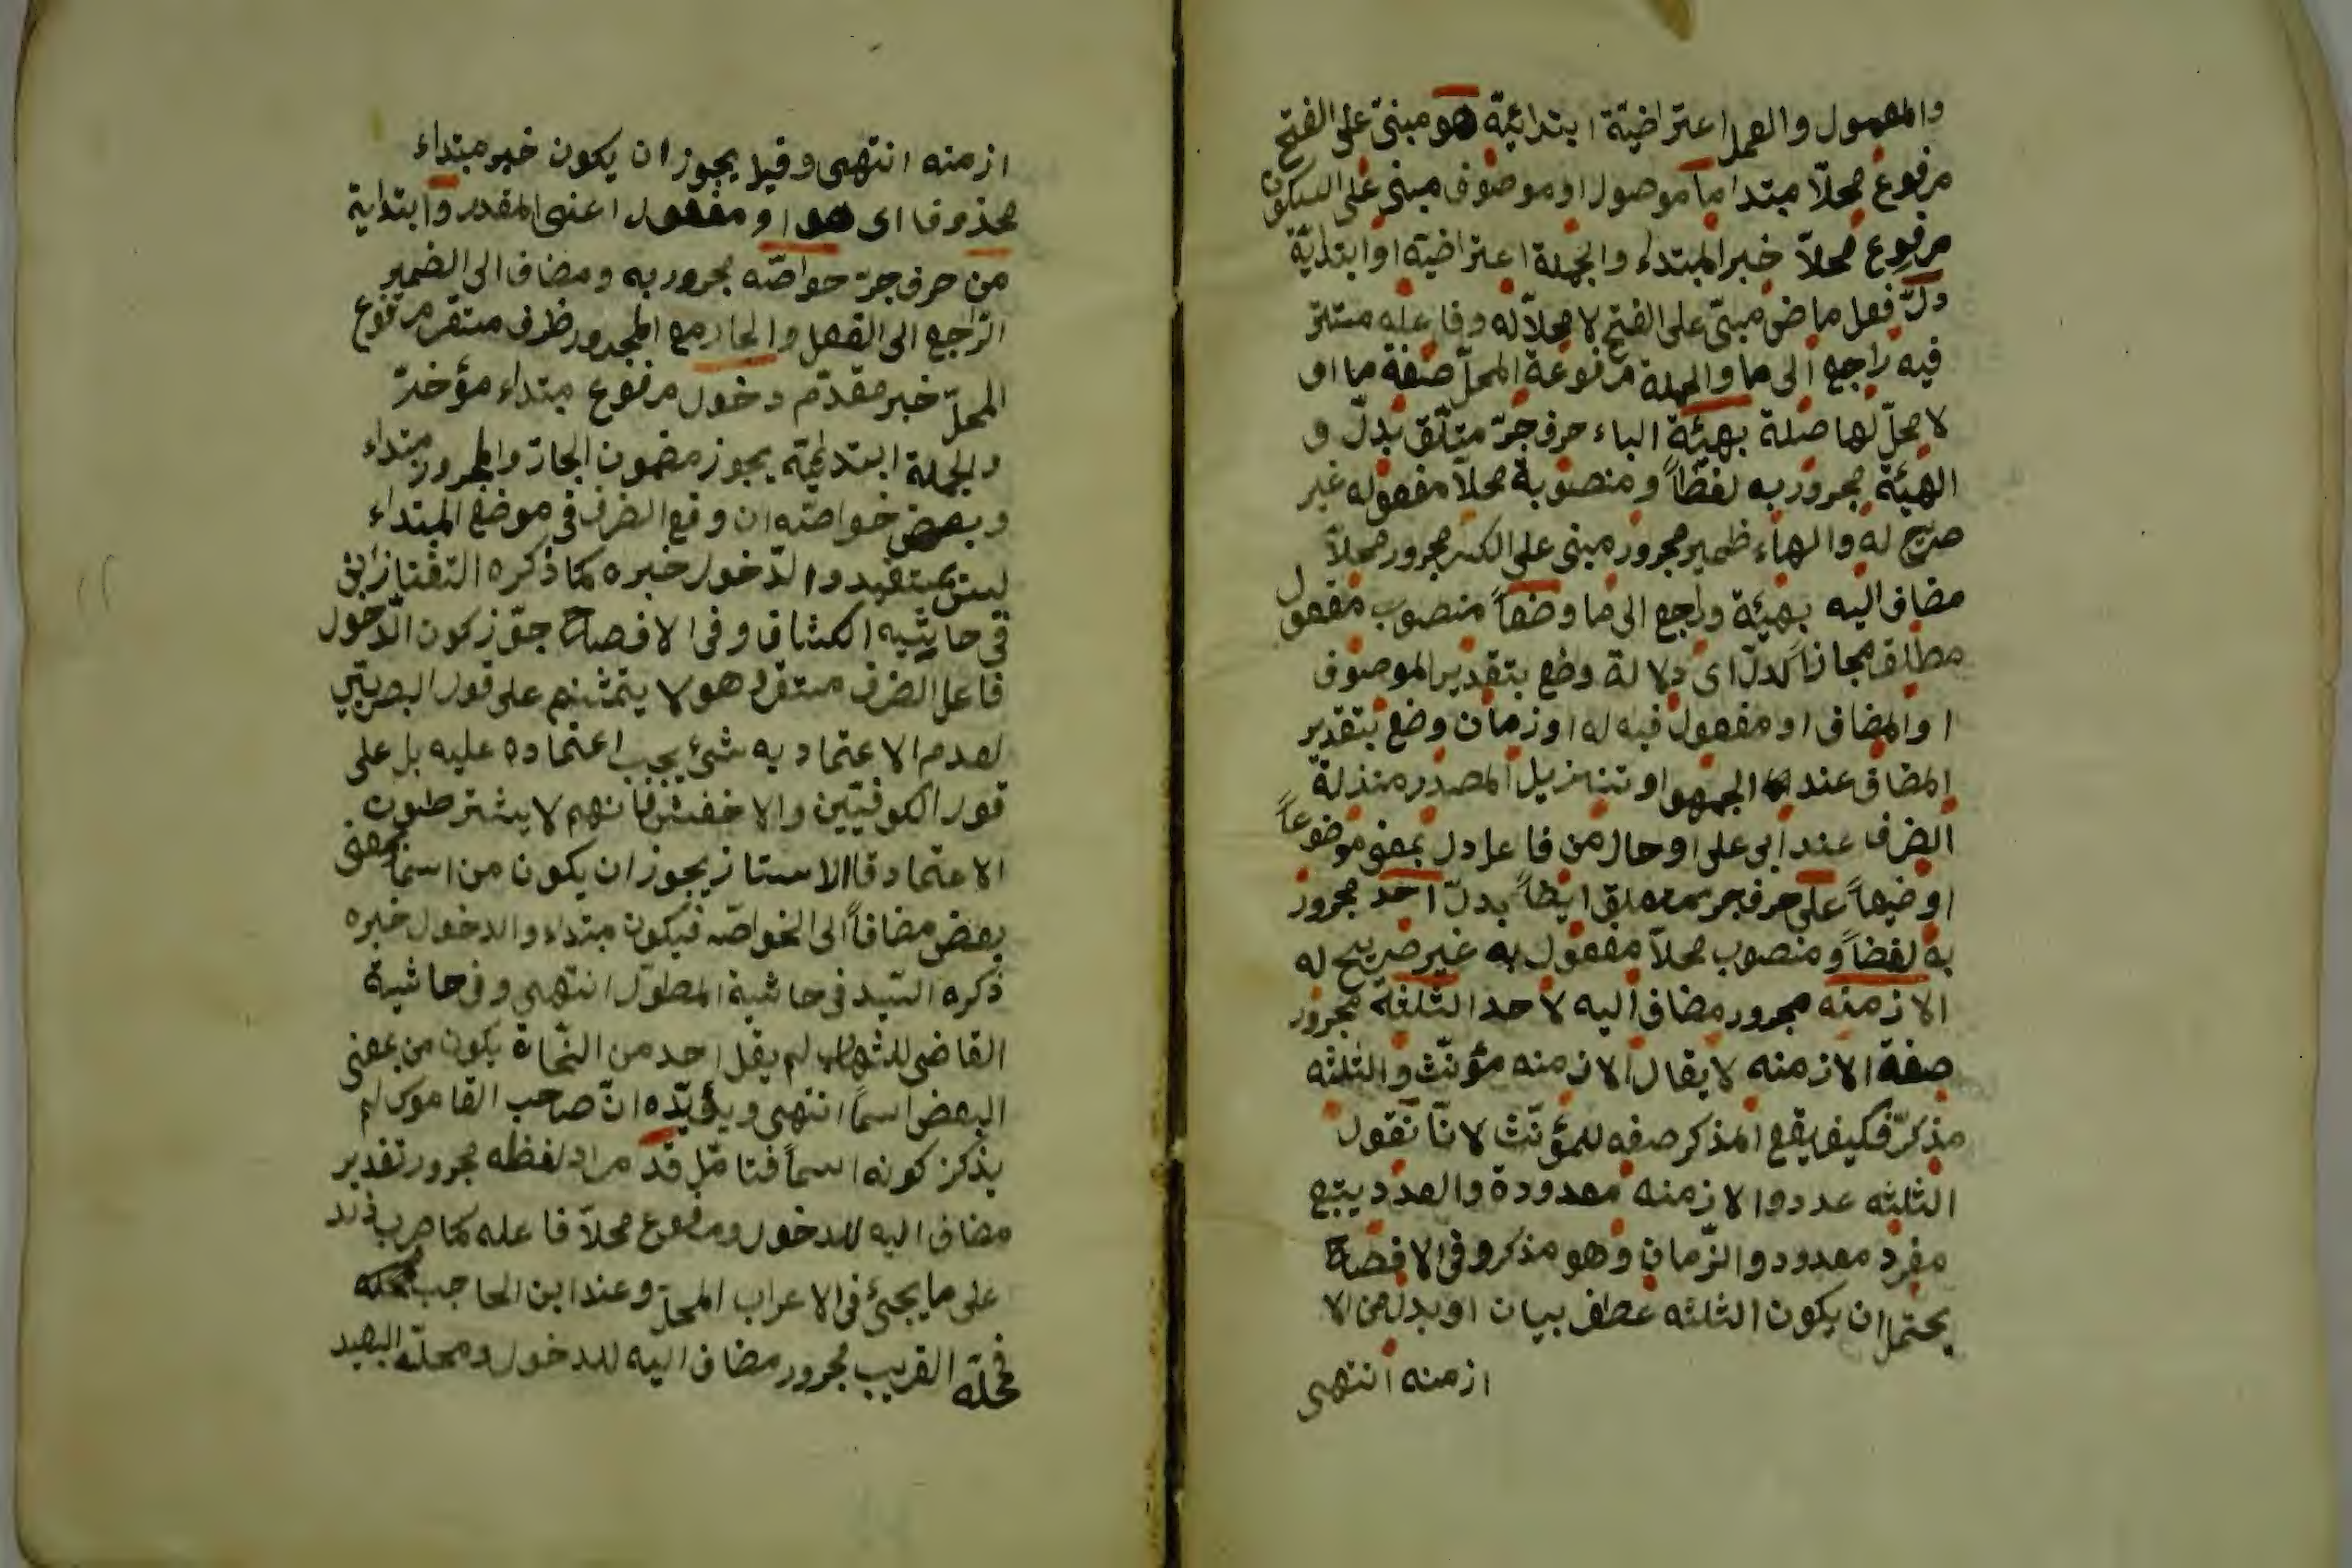 والمعمول والعمل اعتراضيّة ابتدائيّة هو مبنىّ على الفتح
مرفوع محلّا مبتدا ما موصول او موصوف مبنى على السكون
مرفوع محلاّ خبر المبتداء والجملة اعتراضية او ابتدايّة
دلّ فعل ماض مبنىّ على الفتح لا محلاّ له وفاعله مستتر
فيه راجع الى ما والجملة مرفوعة المحلّ صفة ما او
لا محلّ لها صلة بهيئة الباء حرف جرّ متلّق بدلّ و
الهيئة مجرور به لفظاً ومنصوبة محلاّ مفعوله غير
صريح له والهاء ظمير مجرور مبنى على الكسر مجرور محلاّ
مضاف اليه بهيئة وراجع الى ما وضعاً منصوب مفعول
مطلق مجازاً لدلّ اى دلالة وضع بتقدير الموصوف
او المضاف او مفعول فيه له او زمان وضع بتقدير
المضاف عند الجمهو او تنزيل المصدر منذلة
الضرف عند ابى على او حال من فاعل دل بمعنى موضوعاً
او ضيعاً على حرف جر متعلق ايظاً بدلّ احد مجرور
به لفضاً ومنصوب محلاّ مفعول به غير صريح له
الازمنه مجرور مضاف اليه لاحد الثلثة مجرور
صفة الازمنه لا يقال الازمنه مؤنّث والثلثه
مذكرّ فكيف يقع المذكر صفه للمؤنّث لانّا نقول
الثلثه عددوا الازمنه معدودة والعدد يتبع
مفرد معدود والزّمان وهو مذكر وفى الافصاح
يحتمل ان يكون الثلثه عطف بيان او بدل من الا
ازمنه انتهى
ازمنه انتهى وقيل يجوز ان يكون خبر مبتداء
محذوفا اى هو او مفعول اعنى المقدر وابتداية
من حرف جرّ خواصّه مجرور به ومضاف الى الضمير
الرّاجع الى الفعل والجار مع المجرور ظرف مستقر مرفوع
المحلّ خبر مقدّم دخول مرفوع مبتداء مؤخرّ
والجملة ابتدئيّه يجوز مضمون الجارّ والمجرور مبتداء
وبعض خواصّه ان وقع الضرف فى موضع المبتداء
ليس بمستقيد والدّخول خبره كما ذكره التفتازانىّ
فى حاشيه الكشاف وفى الافصاح جوّز كون الدّخول
فاعل الضرف مستقر وهو لا يتمشّ على قول البصريّين
لعدم الاعتماد به شئ يجب اعتماده عليه بل على
قول الكوفيّين والاخفش فانهم لا يشترطون
الاعتماد قال الاستاز يجوز ان يكون من اسما بمعنى
بعض مضافاً الى الخواصّ فيكون مبتداء والدخول خبره
ذكره السّيد فى حاشية المطوّل انتهى وفى حاشية
القاضى للشهاب لم يقل احد من النّحاة يكون من بمعنى
البعض اسماً انتهى ويؤيّده انّ صاحب القاموس لم
يذكر كونه اسماً فتامّل قد مراد لفظه مجرور تقدير
مضاف اليه للدخول ومرفوع محلاّ فاعله كما ضرب زيد
على ما يجئ فى الاعراب المحلّ وعند ابن الحاجب محله
فمحلّه القريب مجرور مضاف اليه للدخول ومحلّه البعيد